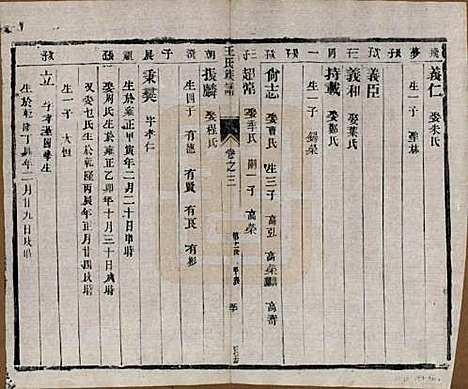 義仁 娶朱氏
生一子
義臣
義和 娶葉氏
持載 娶鄭氏
生一子 錫榮
尙志 娶曹氏 生三子 高弘 高麟 高壽
超常 娶季氏 嗣一子 高榮
王氏族譜 卷之三
振麟 娶程氏
生四子 有德 有賢 有長 有彩
秉樊 字孝仁
生於雍正甲寅年二月二十日申時
娶周氏生於雍正乙卯年十月三十日戌時
又娶包氏生於乾隆丙辰年正月廿四戌時
生一子 大恒
立
生於乾隆丁
年二月廿九日戌時